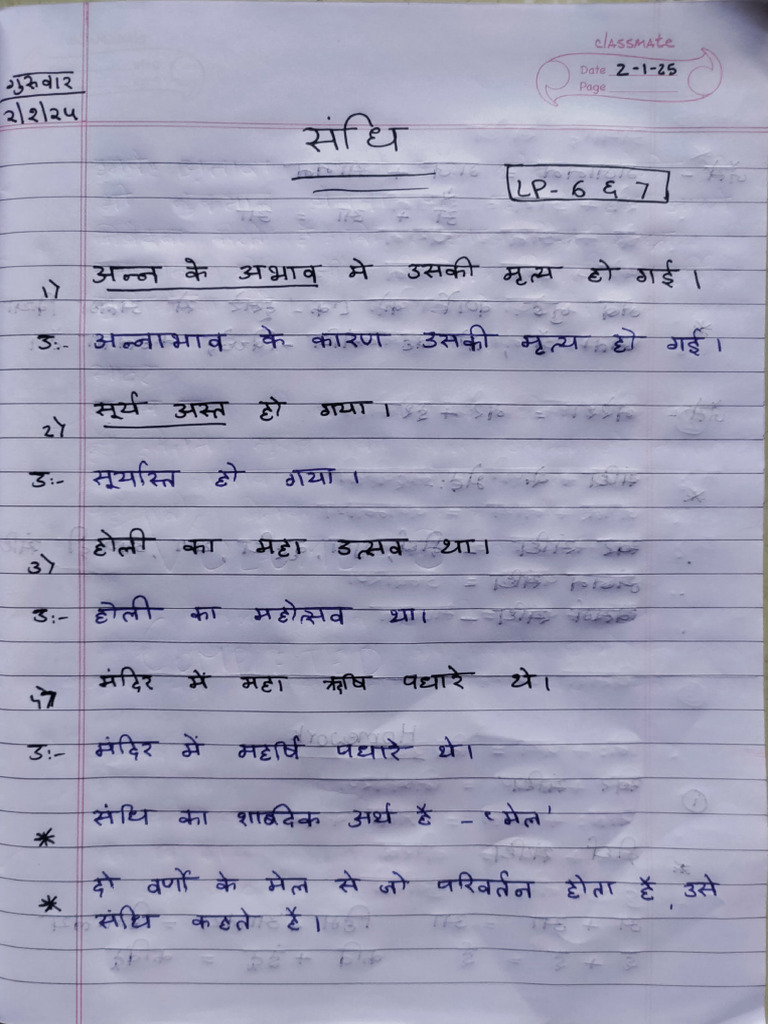 classmate
Date 2-1-25
Page
गुरुवार
२/१/२५
संधि
LP- 6 & 7
1) अन्न के अभाव मे उसकी मृत्य हो गई।
उ:- अन्नाभाव के कारण उसकी मृत्य हो गई।
2) सूर्य अस्त हो गया।
उ:- सूर्यास्त हो गया।
3) होली का महा उत्सव था।
उ:- होली का महोत्सव था।
4) मंदिर में महा ऋषि पधारे थे।
उ:- मंदिर में महर्षि पधारे थे।
* संधि का शाब्दिक अर्थ है - 'मेल'
* दो वर्णो के मेल से जो परिवर्तन होता है, उसे
संधि कहते है।